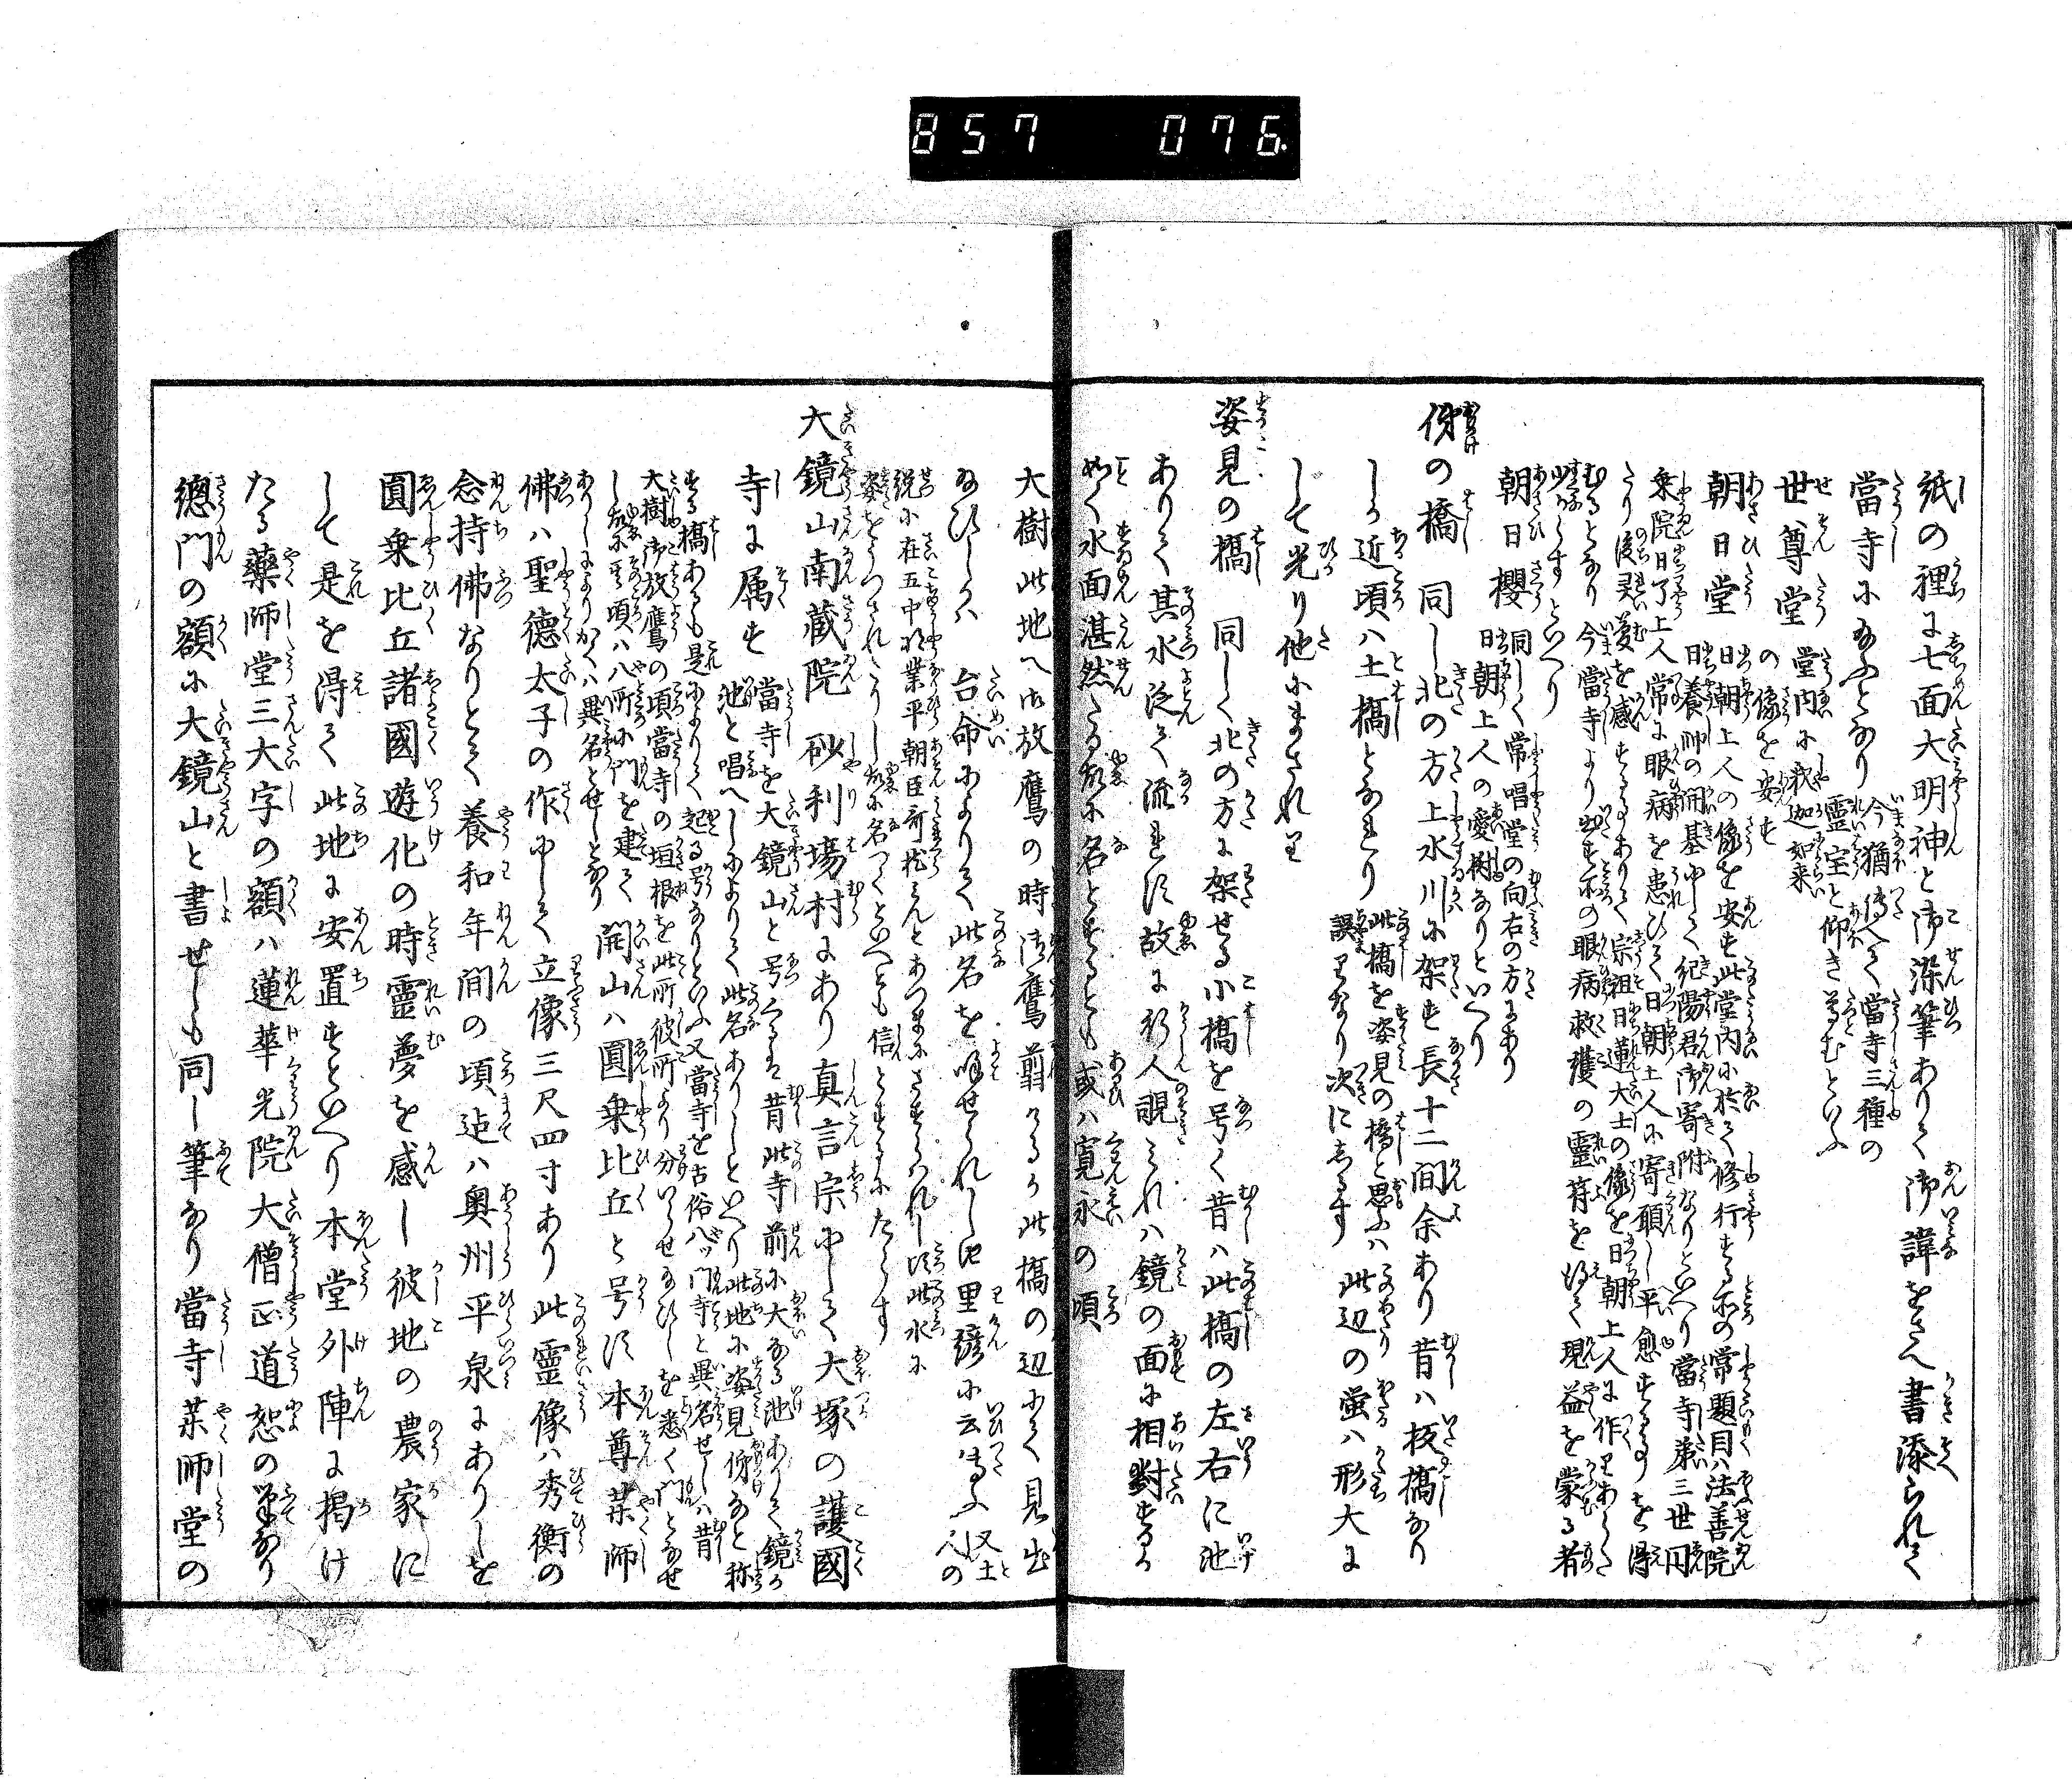 857 076
紙の裡に七面大明神と御染筆ありて御諱をさへ書添られて
當寺に賜ふとなり 今猶傳へて當寺三種の
霊宝と仰き尊むといふ
世尊堂 堂内に釈迦如来
の像を安す
朝日堂 日朝上人の像を安す此堂内に於て修行する所の常題目ハ法善院
日養師の開基にして紀陽君御寄附なりといへり當寺第三世円
乗院日了上人常に眼病を患ひて日朝上人に寄願し平愈することを得
たり後霊夢を感することありて宗祖日蓮大士の像を日朝上人に作りあらた
むるとなり今當寺より出す所の眼病救護の霊符を得て現益を蒙る者
少からすといへり
朝日櫻 同しく常唱堂の向右の方にあり
日朝上人の愛樹なりといへり
俤の橋 同し北の方上水川に架す長十二間余あり昔ハ板橋なり
しか近頃ハ土橋となれり 此橋を姿見の橋と思ふハ
誤りなり次にしるす 此辺の蛍ハ形大に
して光り他にまされり
姿見の橋 同しく北の方に架せる小橋を号く昔ハ此橋の左右に池
ありて其水淀て流れす故に行人覗みれハ鏡の面に相對するか
如く水面湛然たる故に名とすとも或ハ寛永の頃
大樹此地へ御放鷹の時御鷹翦れるか此橋の辺にて見出
給ひしかハ 台命によりて此名を呼せられし由里諺に云傳ふ 又土
人の
説に在五中将業平朝臣
姿をうつされたりし故に名つくといへとも信とするにたらす
大鏡山南蔵院 砂利場村にあり真言宗にして大塚の護國
寺に属す 當寺を大鏡山と号くるは昔此寺前に大なる池ありて鏡か
池と唱へしによりて此名ありしといへり此地に姿見俤なと称
する橋あるも是によりて起る号なりといふ又當寺を古俗八ッ門寺と異名せしハ昔
大樹御放鷹の頃當寺の垣根を此所彼所より分いらせ給ひしを悉く門となせ
し故に其頃ハ八所に門を建て
ありしによりかくハ異名とせしとなり 開山ハ圓乗比丘と号す本尊薬師
佛ハ聖徳太子の作にして立像三尺四寸あり此靈像ハ秀衡の
念持佛なりとて養和年間の頃迠ハ奥州平泉にありしを
圓乗比丘諸國遊化の時靈夢を感し彼地の農家に
して是を得て此地に安置すといへり本堂外陣に掲け
たる藥師堂三大字の額ハ蓮華光院大僧正道恕の筆なり
總門の額に大鏡山と書せしも同し筆なり當寺薬師堂の